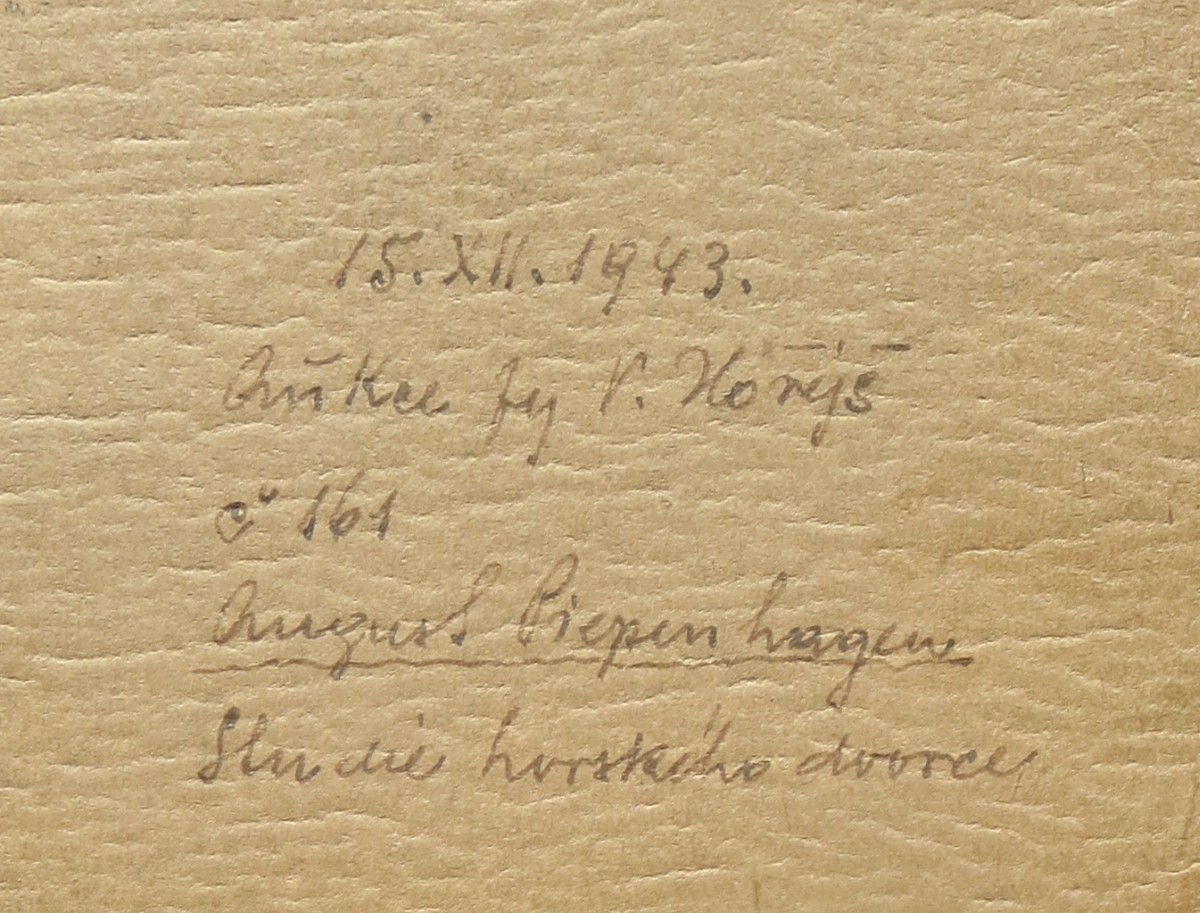 15.XII.1943.
Aukce fy V. Hořejš
č 161
August Piepenhagen
Studie horského dvorce